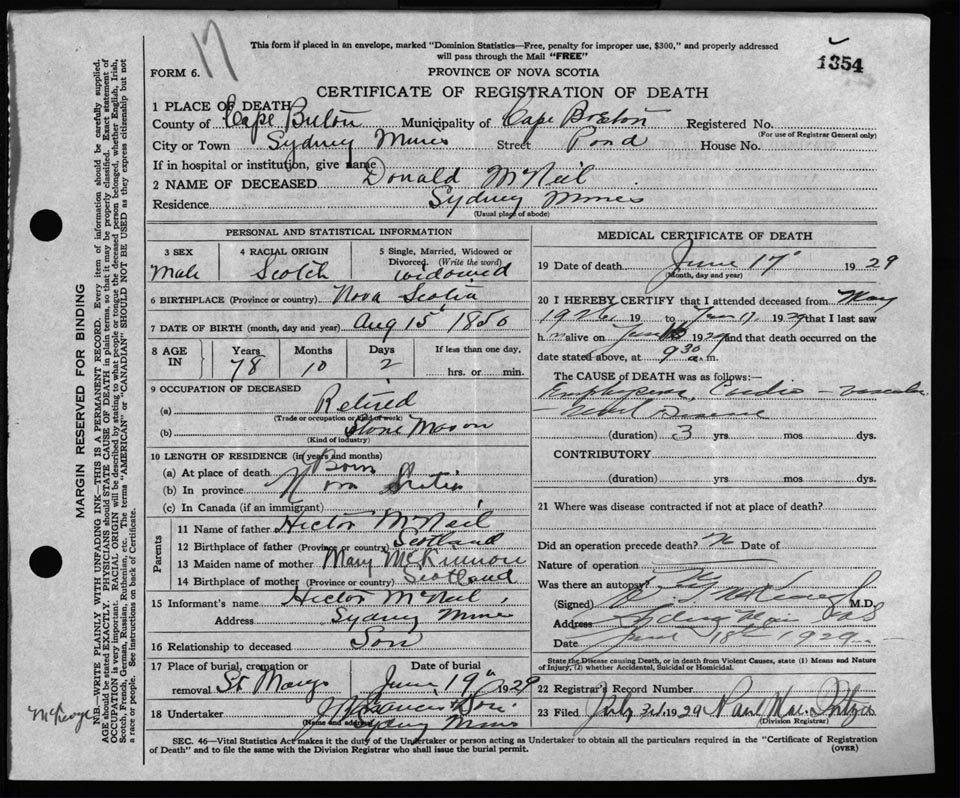 17
This form if placed in an envelope, marked "Dominion Statistics—Free, penalty for improper use, $300," and properly addressed
will pass through the Mail "FREE"
1354
FORM 6.
PROVINCE OF NOVA SCOTIA
CERTIFICATE OF REGISTRATION OF DEATH
1 PLACE OF DEATH
County of Cape Breton Municipality of Cape Breton Registered No.
(For use of Registrar General only)
City or Town Sydney Mines Street Pond House No.
If in hospital or institution, give name
2 NAME OF DECEASED Donald McNeil
Residence Sydney Mines
(Usual place of abode)
PERSONAL AND STATISTICAL INFORMATION
3 SEX Male
4 RACIAL ORIGIN Scotch
5 Single, Married, Widowed or
Divorced (Write the word)
widowed
6 BIRTHPLACE (Province or country) Nova Scotia
7 DATE OF BIRTH (month, day and year) Aug 15 1850
8 AGE IN Years 78 Months 10 Days 2 If less than one day,
hrs. or min.
9 OCCUPATION OF DECEASED
(a) Retired
(Trade or occupation or kind of work)
(b) Stone Mason
(Kind of industry)
10 LENGTH OF RESIDENCE (in years and months)
(a) At place of death Born
(b) In province Nova Scotia
(c) In Canada (if an immigrant)
Parents
11 Name of father Hector McNeil
12 Birthplace of father (Province or country) Scotland
13 Maiden name of mother Mary McKinnon
14 Birthplace of mother (Province or country) Scotland
15 Informant's name Hector McNeil
Address Sydney Mines
16 Relationship to deceased Son
17 Place of burial, cremation or
removal St Marys
Date of burial
June 19 1929
18 Undertaker & Son
(Name and address) Sydney Mines
MEDICAL CERTIFICATE OF DEATH
19 Date of death June 17 1929
(Month, day and year)
20 I HEREBY CERTIFY that I attended deceased from May
1926 19 to 17 1929 that I last saw
h m alive on 1929 and that death occurred on
date stated above, at 9 30 a.m.
The CAUSE of DEATH was as follows:—
Emphysema, Cardio
Disease
(duration) 3 yrs. mos dys.
CONTRIBUTORY
(duration) yrs. mos dys.
21 Where was disease contracted if not at place of death?
Did an operation precede death? No Date of
Nature of operation
Was there an autopsy?
(Signed) M.D.
Address Sydney Mines NS
Date June 18th 1929
State the Disease causing Death, or in death from Violent Causes, state (1) Means and Nature
of Injury, (2) whether Accidental, Suicidal or Homicidal.
22 Registrar's Record Number
23 Filed July 3rd 1929
(Division Registrar)
SEC. 46—Vital Statistics Act makes it the duty of the Undertaker or person acting as Undertaker to obtain all the particulars required in the "Certificate of Registration
of Death" and to file the same with the Division Registrar who shall issue the burial permit.
(OVER)
MARGIN RESERVED FOR BINDING
N.B.—WRITE PLAINLY WITH UNFADING INK—THIS IS A PERMANENT RECORD. Every item of information should be carefully supplied.
AGE should be stated EXACTLY. PHYSICIANS should STATE CAUSE OF DEATH in plain terms, so that it may be properly classified. Exact statement of
OCCUPATION is very important. RACIAL ORIGIN will be described by stating to what people or tongue the deceased person belonged, whether English, Irish,
Scotch, French, German, Russian, Ruthenian, etc. The terms "AMERICAN" or "CANADIAN" SHOULD NOT BE USED as they express citizenship but not
a race or people. See instructions on back of Certificate.